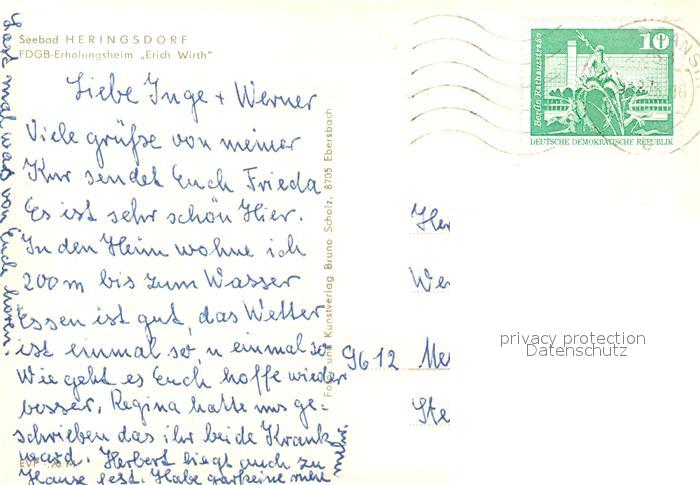 Seebad HERINGSDORF
FDGB-Erholungsheim „Erich Wirth"
Liebe Inge + Werner
Viele grüße von meiner
Kur sendet Euch Frieda
Es ist sehr schön Hier.
In den Heim wohne ich
200m bis zum Wasser
Essen ist gut, das Wetter
ist einmal so, u einmal so
Wie geht es Euch hoffe wieder
besser, Regina hatte uns ge-
schrieben das ihr beide Krank
ward. Herbert liegt auch zu
Hause fest. Habe gar keine
mehr.
Laßt mal was von Euch hören.
EVP -,20 M
Foto- und Kunstverlag Bruno Scholz, 8705 Ebersbach
10
Berlin Rathausstraße
DEUTSCHE DEMOKRATISCHE REPUBLIK
Her
Wer
9612 Mee
Ste
privacy protection
Datenschutz